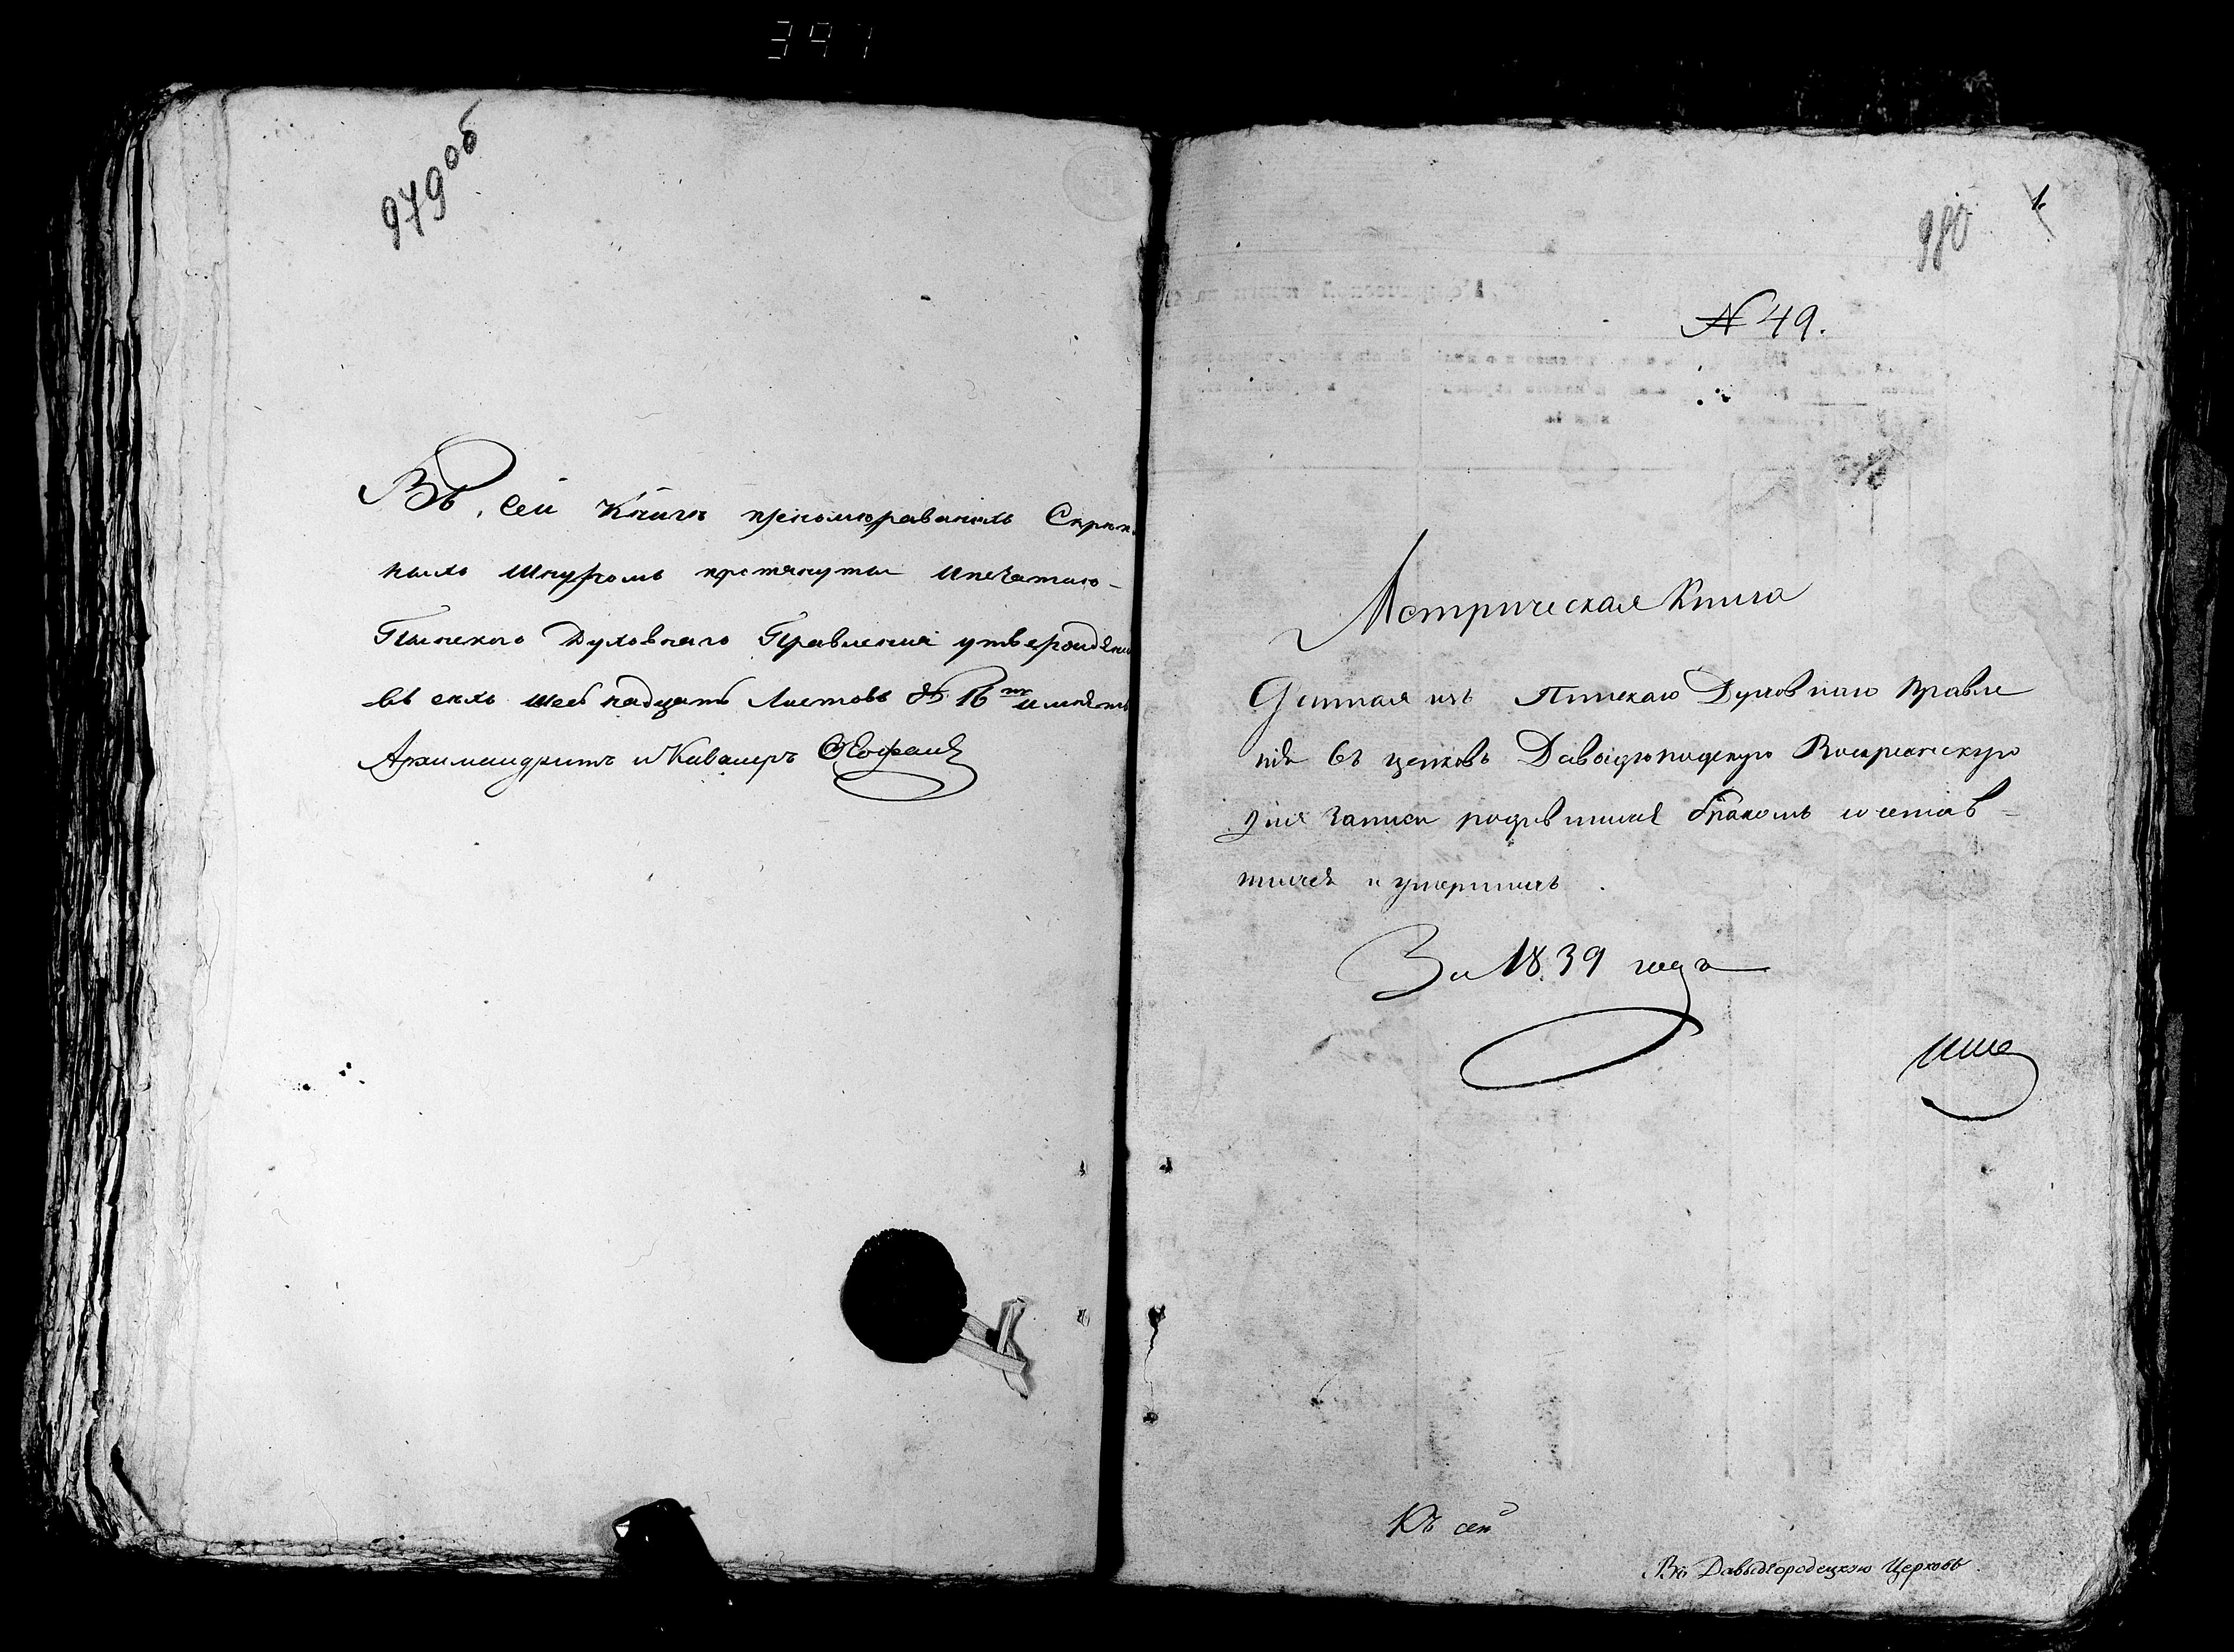 397
979 об
Въ сей Книгѣ преномерованыхъ Скрѣп
ныхъ Шнуромъ протянутыи ипечатию
Пинского Духовнаго Правления утверждены
въ сихъ шеснадцать Листовъ 16 имѣетъ
Архимандритъ и Кавалеръ
980
1.
№ 49.
Метрическая Книга
Данная изъ Пинскаго Духовнаго Правле
нія въ церковь Давыдгородскую Воскресенскую
для записи родившихся бракомъ сочетав-
шихся и умершихъ
За 1839 годъ
Къ сей
Въ Давыдгородецкою Церковь